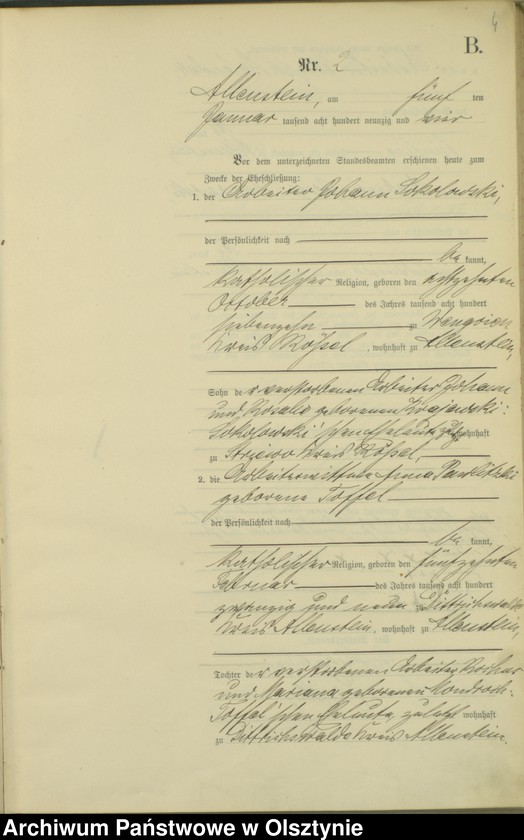 4
B.
Nr. 2
Allenstein, am fünf ten
Januar tausend acht hundert neunzig und vier
Vor dem unterzeichneten Standesbeamten erschienen heute zum
Zwecke der Eheschließung:
1. der Arbeiter Johann Sokolowski,
der Persönlichkeit nach
be kannt,
katholischer Religion, geboren den achtzehnten
October des Jahres tausend acht hundert
siebenzehn zu Wengoien
Kreis Rößel, wohnhaft zu Allenstein,
Sohn der verstorbenen Arbeiter Johann
und Rosalie geborenen Krajewski-
Sokolowski'schen Eheleute, wohnhaft
zu Kreis Rößel,
2. die Arbeiterwittwe Anna Pawlitzki
geborene Toffel
der Persönlichkeit nach
be kannt,
katholischer Religion, geboren den fünfzehnten
Februar des Jahres tausend acht hundert
zwanzig und neun zu Dittrichswalde
Kreis Allenstein, wohnhaft zu Allenstein,
Tochter der verstorbenen Arbeiter
und Mariana geborenen
Toffel'schen Eheleute, zuletzt wohnhaft
zu Dittrichswalde Kreis Allenstein.
Archiwum Państwowe w Olsztynie